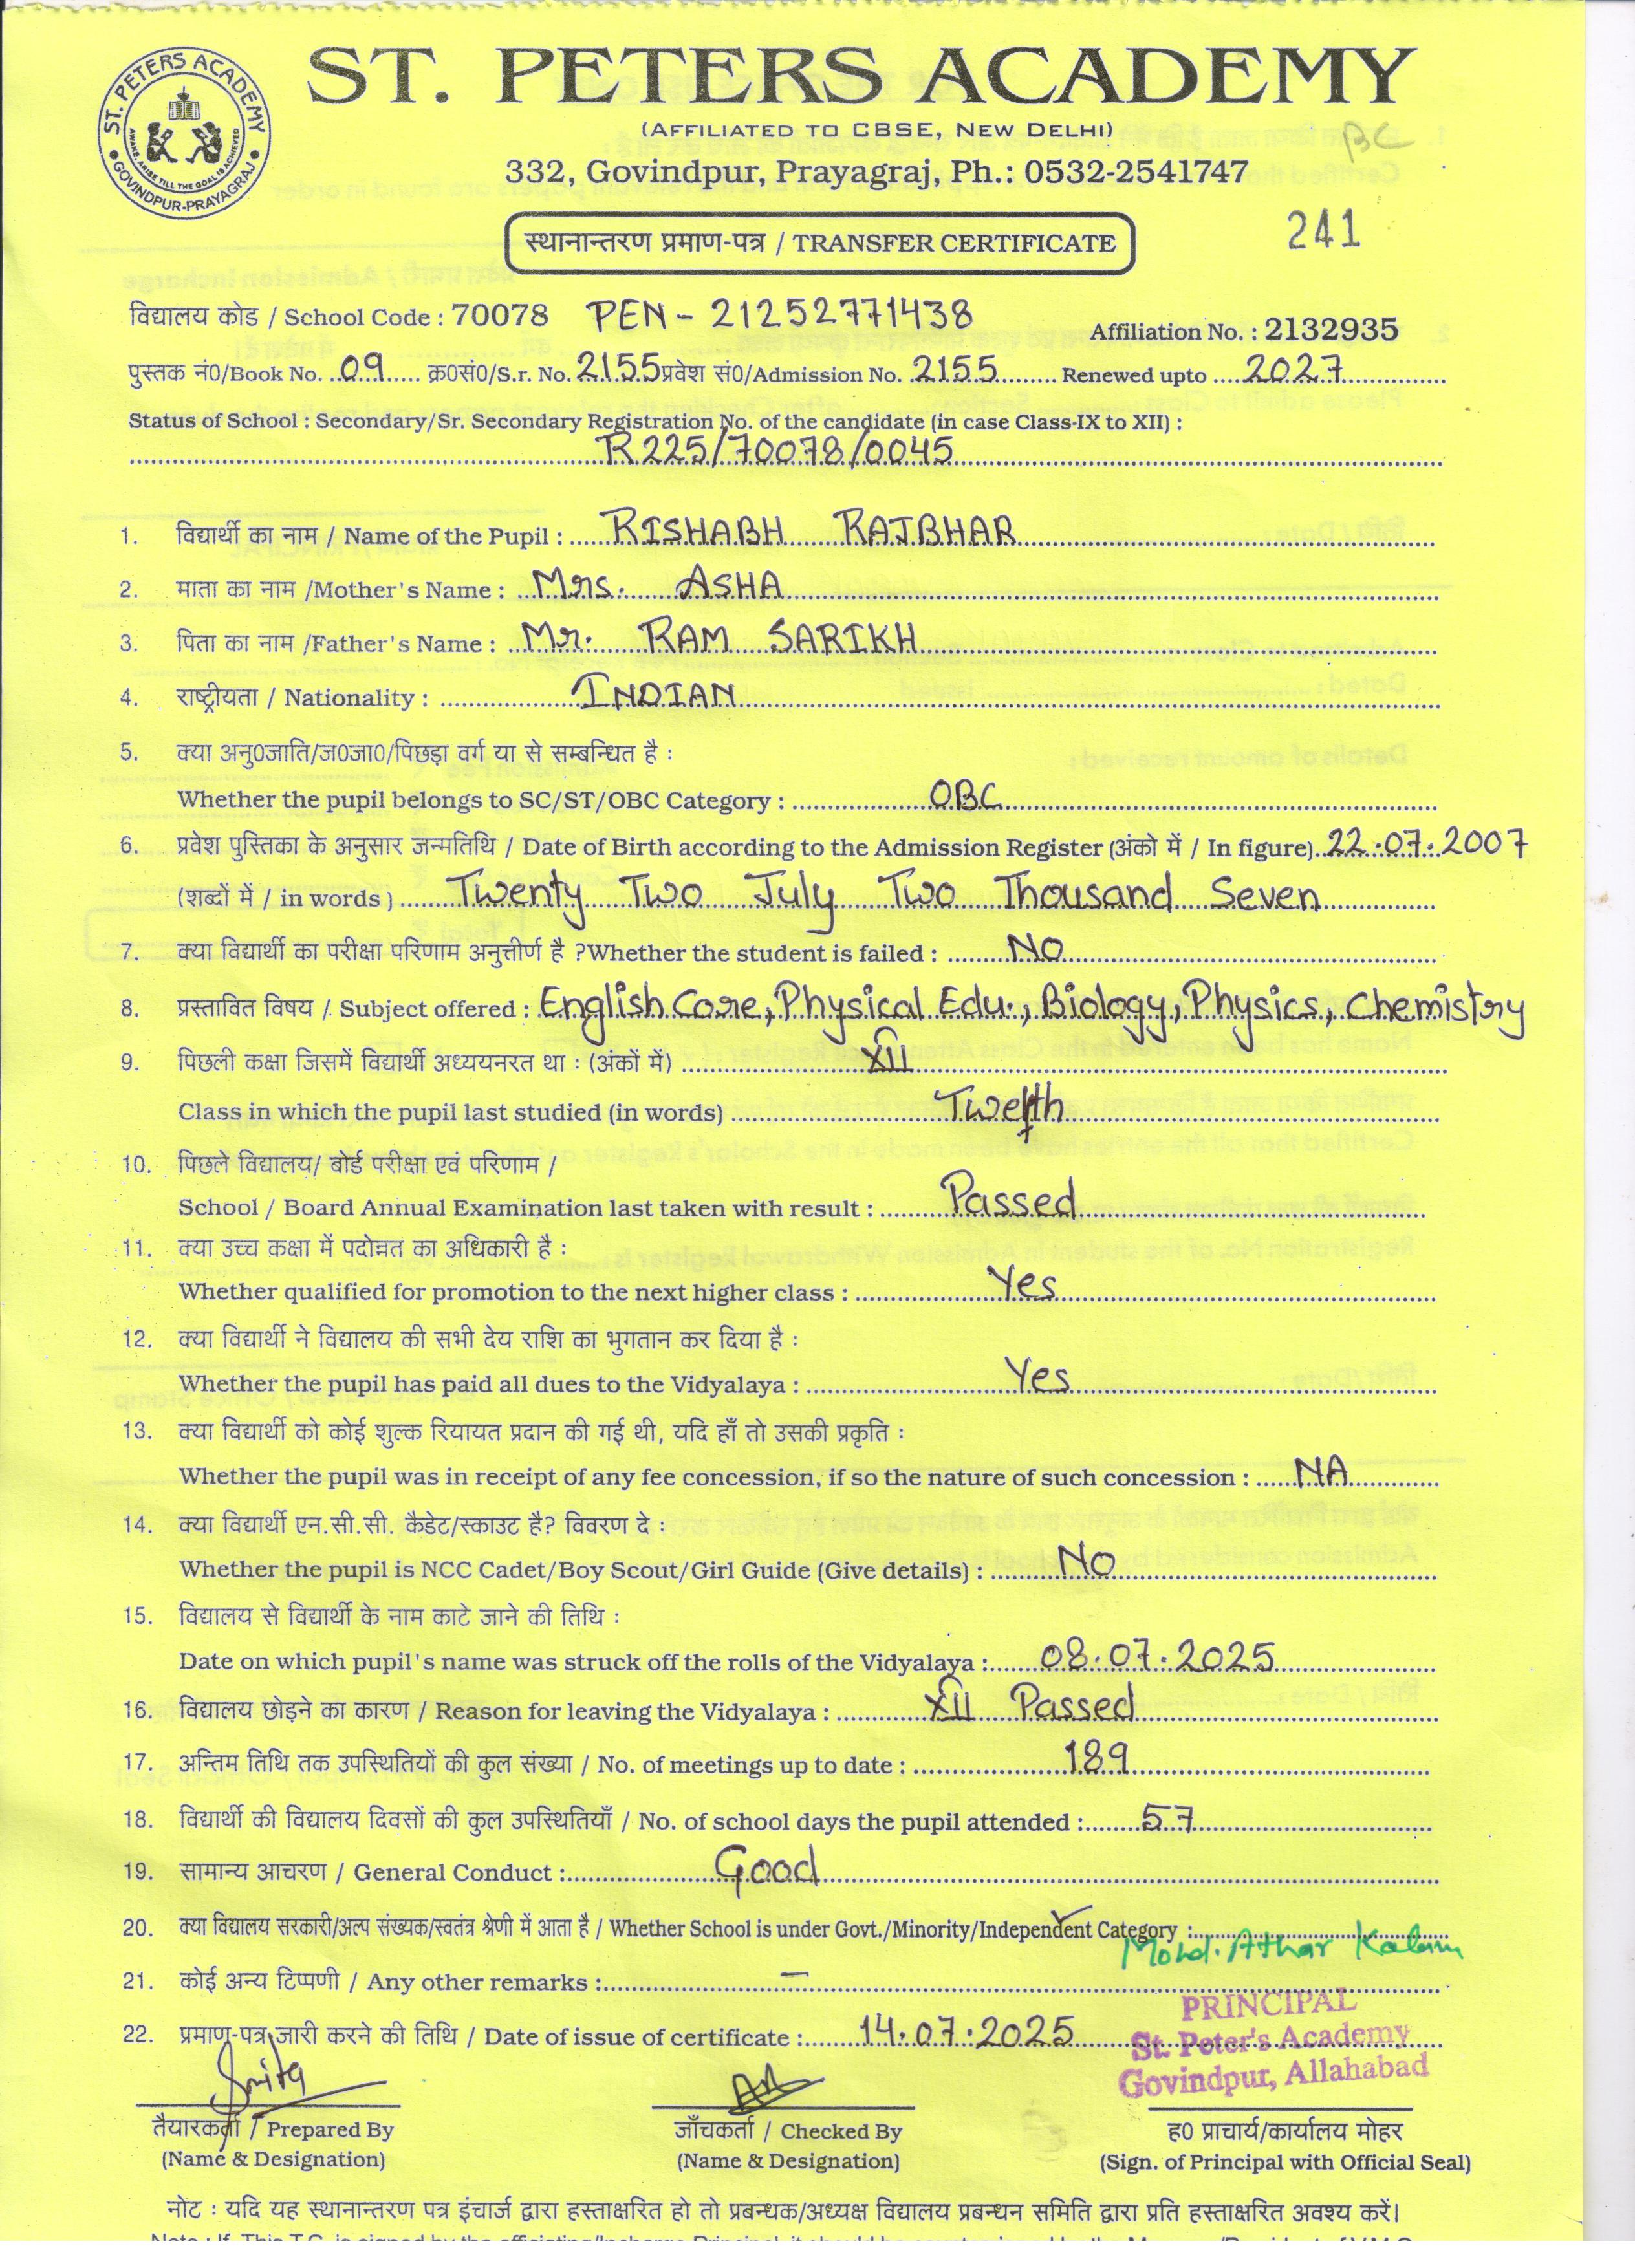 ST. PETERS ACADEMY
AWAKE, ARISE TILL THE GOAL IS ACHIEVED
GOVINDPUR-PRAYAGRAJ
ST. PETERS ACADEMY
(AFFILIATED TO CBSE, NEW DELHI)
BC
332, Govindpur, Prayagraj, Ph.: 0532-2541747
स्थानान्तरण प्रमाण-पत्र / TRANSFER CERTIFICATE
241
विद्यालय कोड / School Code : 70078 PEN - 21252771438 Affiliation No. : 2132935
पुस्तक नं0/Book No. 09 क्र0सं0/S.r. No. 2155 प्रवेश सं0/Admission No. 2155 Renewed upto 2027
Status of School : Secondary/Sr. Secondary Registration No. of the candidate (in case Class-IX to XII) :
R225/70078/0045
1. विद्यार्थी का नाम / Name of the Pupil : RISHABH RAJBHAR
2. माता का नाम /Mother's Name : Mrs. ASHA
3. पिता का नाम /Father's Name : Mr. RAM SARIKH
4. राष्ट्रीयता / Nationality : INDIAN
5. क्या अनु0जाति/ज0जा0/पिछड़ा वर्ग या से सम्बन्धित है :
Whether the pupil belongs to SC/ST/OBC Category : OBC
6. प्रवेश पुस्तिका के अनुसार जन्मतिथि / Date of Birth according to the Admission Register (अंको में / In figure) 22.07.2007
(शब्दों में / in words ) Twenty Two July Two Thousand Seven
7. क्या विद्यार्थी का परीक्षा परिणाम अनुत्तीर्ण है ?Whether the student is failed : NO
8. प्रस्तावित विषय / Subject offered : English Core, Physical Edu., Biology, Physics, Chemistry
9. पिछली कक्षा जिसमें विद्यार्थी अध्ययनरत था : (अंकों में) XII
Class in which the pupil last studied (in words) Twelfth
10. पिछले विद्यालय/ बोर्ड परीक्षा एवं परिणाम /
School / Board Annual Examination last taken with result : Passed
11. क्या उच्च कक्षा में पदोन्नत का अधिकारी है :
Whether qualified for promotion to the next higher class : Yes
12. क्या विद्यार्थी ने विद्यालय की सभी देय राशि का भुगतान कर दिया है :
Whether the pupil has paid all dues to the Vidyalaya : Yes
13. क्या विद्यार्थी को कोई शुल्क रियायत प्रदान की गई थी, यदि हाँ तो उसकी प्रकृति :
Whether the pupil was in receipt of any fee concession, if so the nature of such concession : NA
14. क्या विद्यार्थी एन.सी.सी. कैडेट/स्काउट है? विवरण दे :
Whether the pupil is NCC Cadet/Boy Scout/Girl Guide (Give details) : NO
15. विद्यालय से विद्यार्थी के नाम काटे जाने की तिथि :
Date on which pupil's name was struck off the rolls of the Vidyalaya : 08.07.2025
16. विद्यालय छोड़ने का कारण / Reason for leaving the Vidyalaya : XII Passed
17. अन्तिम तिथि तक उपस्थितियों की कुल संख्या / No. of meetings up to date : 189
18. विद्यार्थी की विद्यालय दिवसों की कुल उपस्थितियाँ / No. of school days the pupil attended : 57
19. सामान्य आचरण / General Conduct : Good
20. क्या विद्यालय सरकारी/अल्प संख्यक/स्वतंत्र श्रेणी में आता है / Whether School is under Govt./Minority/Independent Category :
Mohd. Athar Kalam
21. कोई अन्य टिप्पणी / Any other remarks : —
PRINCIPAL
22. प्रमाण-पत्र जारी करने की तिथि / Date of issue of certificate : 14.07.2025
St. Peter's Academy
Govindpur, Allahabad
Smita
तैयारकर्ता / Prepared By जाँचकर्ता / Checked By ह0 प्राचार्य/कार्यालय मोहर
(Name & Designation) (Name & Designation) (Sign. of Principal with Official Seal)
नोट : यदि यह स्थानान्तरण पत्र इंचार्ज द्वारा हस्ताक्षरित हो तो प्रबन्धक/अध्यक्ष विद्यालय प्रबन्धन समिति द्वारा प्रति हस्ताक्षरित अवश्य करें।